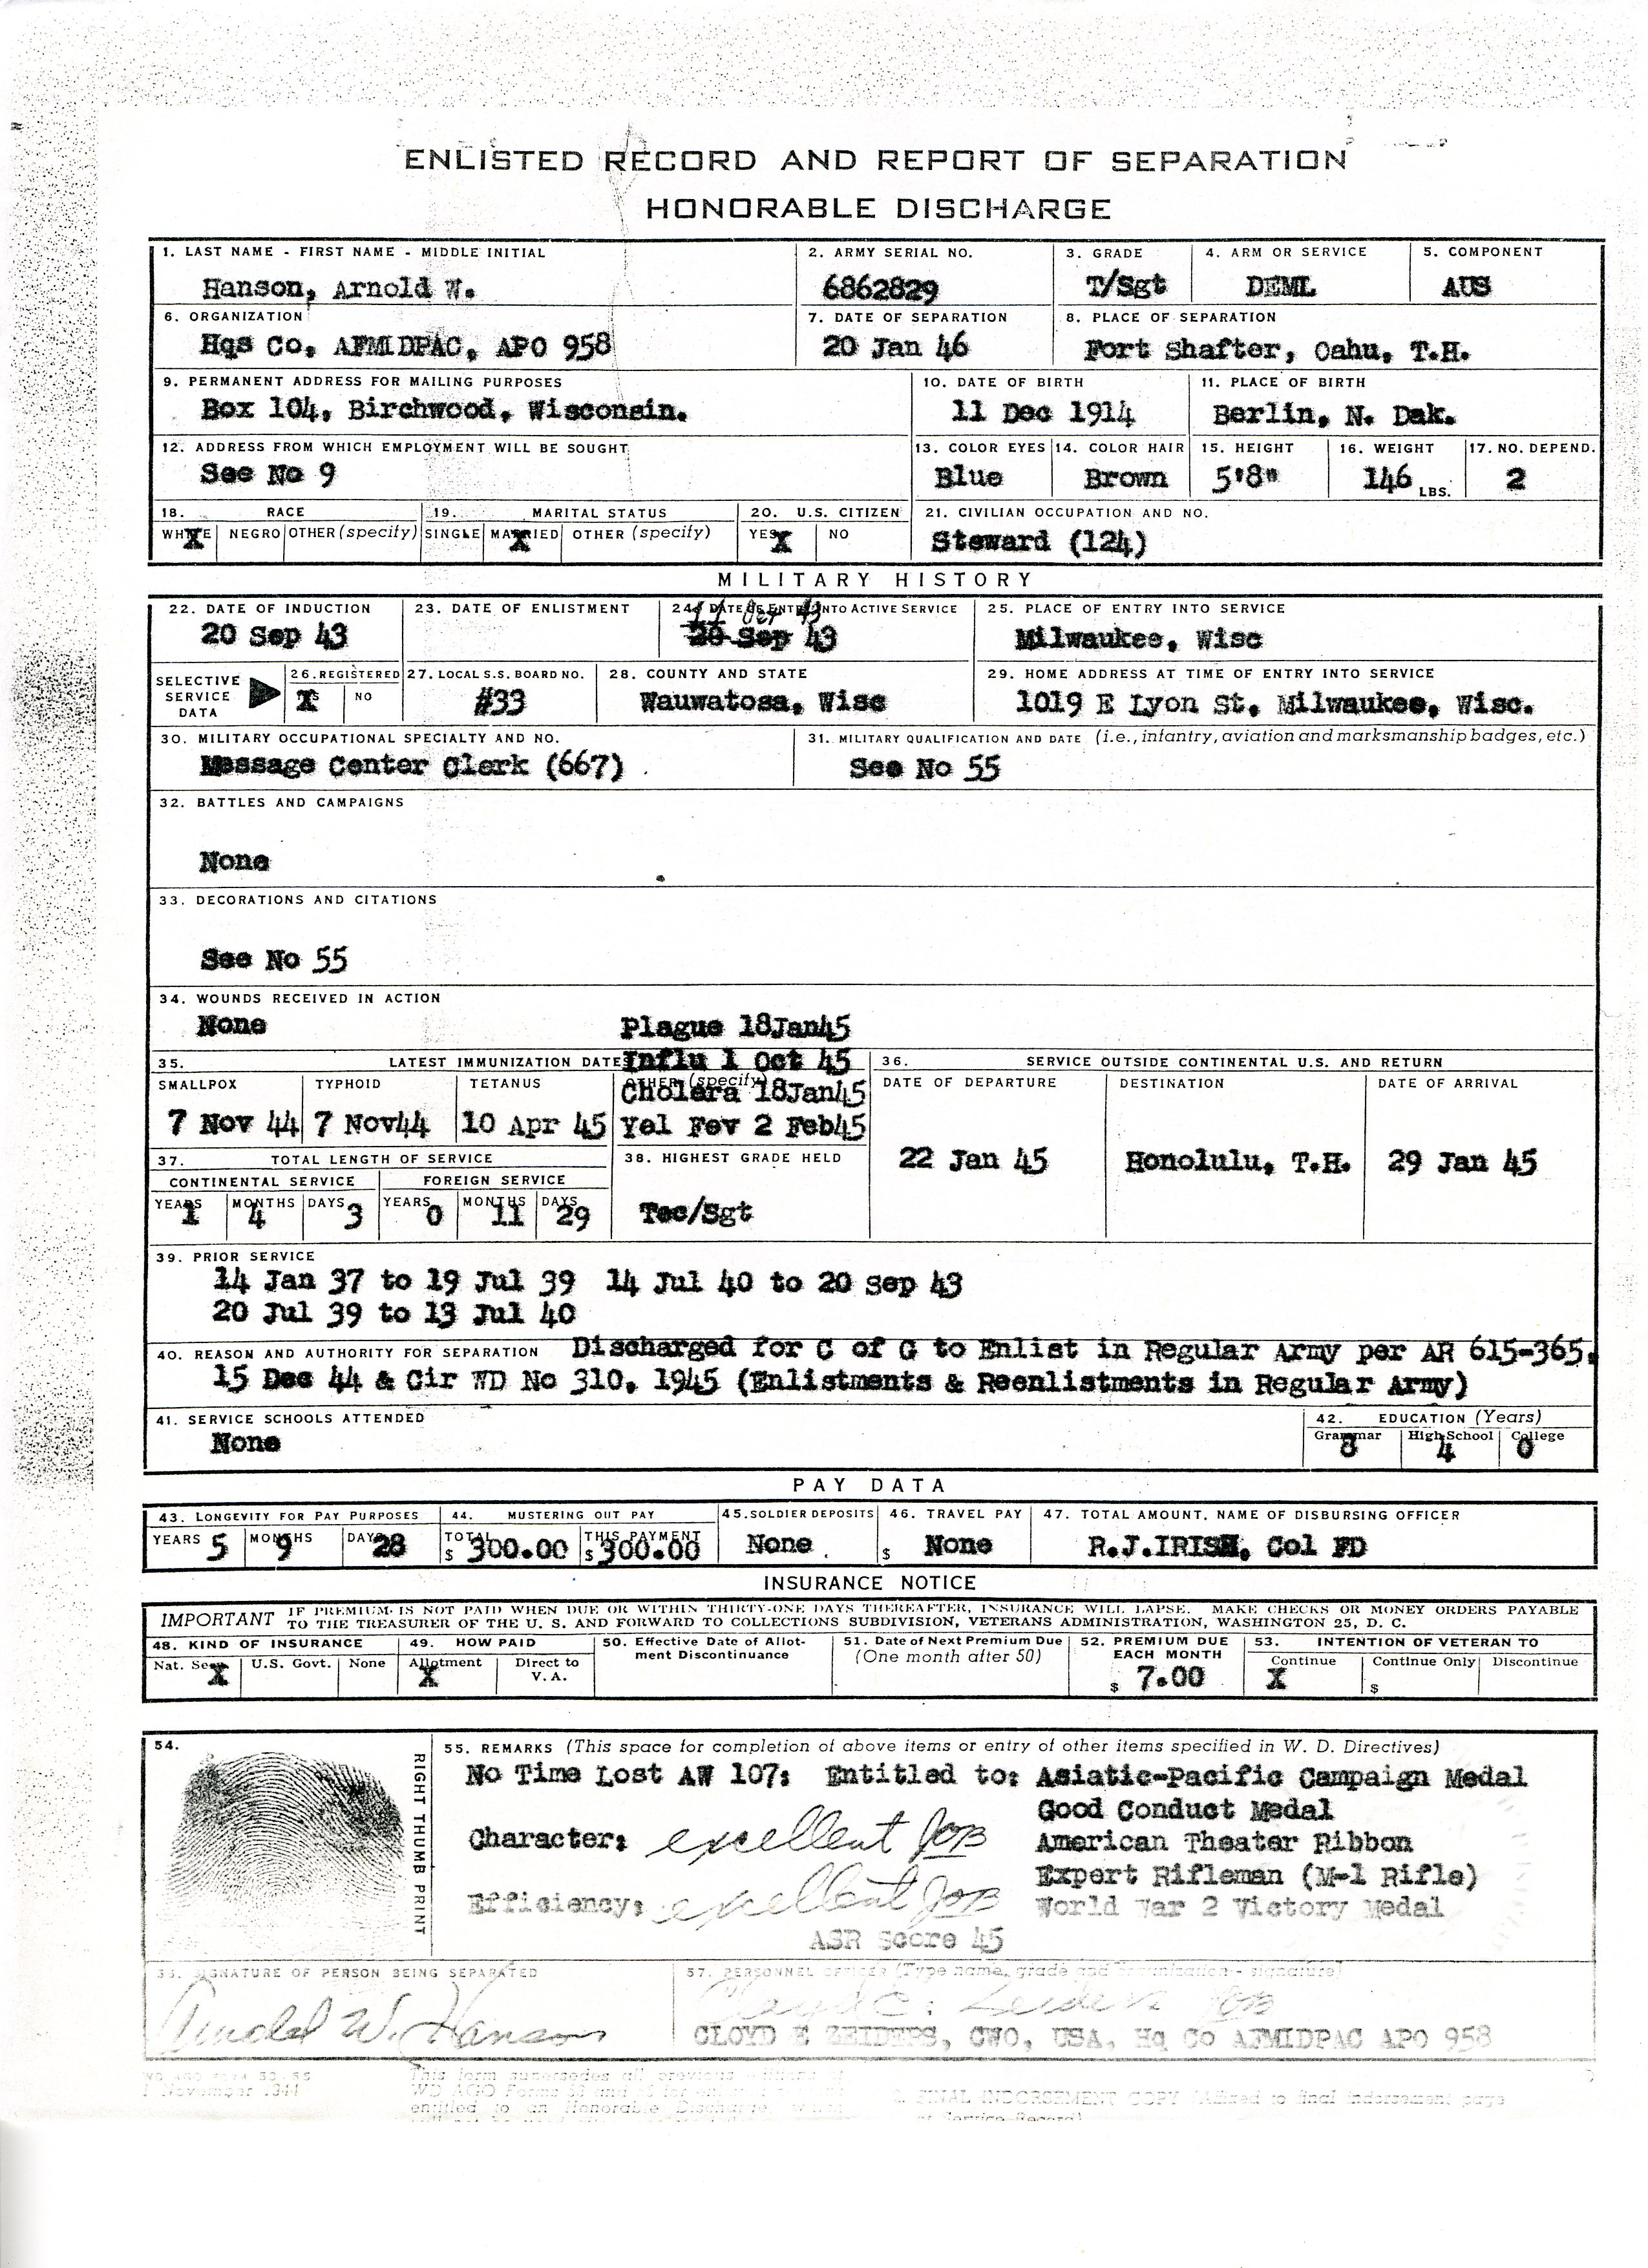 ENLISTED RECORD AND REPORT OF SEPARATION
HONORABLE DISCHARGE
1. LAST NAME - FIRST NAME - MIDDLE INITIAL
Hanson, Arnold W.
2. ARMY SERIAL NO.
6862829
3. GRADE
T/Sgt
4. ARM OR SERVICE
DEML
5. COMPONENT
AUS
6. ORGANIZATION
Hqs Co, AFMIDPAC, APO 958
7. DATE OF SEPARATION
20 Jan 46
8. PLACE OF SEPARATION
Fort Shafter, Oahu, T.H.
9. PERMANENT ADDRESS FOR MAILING PURPOSES
Box 104, Birchwood, Wisconsin.
10. DATE OF BIRTH
11 Dec 1914
11. PLACE OF BIRTH
Berlin, N. Dak.
12. ADDRESS FROM WHICH EMPLOYMENT WILL BE SOUGHT
See No 9
13. COLOR EYES
Blue
14. COLOR HAIR
Brown
15. HEIGHT
5'8"
16. WEIGHT
146 LBS.
17. NO. DEPEND.
2
18. RACE
WHITE X NEGRO OTHER (specify)
19. MARITAL STATUS
SINGLE MARRIED X OTHER (specify)
20. U.S. CITIZEN
YES X NO
21. CIVILIAN OCCUPATION AND NO.
Steward (124)
MILITARY HISTORY
22. DATE OF INDUCTION
20 Sep 43
23. DATE OF ENLISTMENT
24. DATE OF ENTRY INTO ACTIVE SERVICE
11 Oct 43
20 Sep 43
25. PLACE OF ENTRY INTO SERVICE
Milwaukee, Wisc
SELECTIVE SERVICE DATA
26. REGISTERED
YES X NO
27. LOCAL S.S. BOARD NO.
#33
28. COUNTY AND STATE
Wauwatosa, Wisc
29. HOME ADDRESS AT TIME OF ENTRY INTO SERVICE
1019 E Lyon St, Milwaukee, Wisc.
30. MILITARY OCCUPATIONAL SPECIALTY AND NO.
Message Center Clerk (667)
31. MILITARY QUALIFICATION AND DATE (i.e., infantry, aviation and marksmanship badges, etc.)
See No 55
32. BATTLES AND CAMPAIGNS
None
33. DECORATIONS AND CITATIONS
See No 55
34. WOUNDS RECEIVED IN ACTION
None
35. LATEST IMMUNIZATION DATES
SMALLPOX
7 Nov 44
TYPHOID
7 Nov44
TETANUS
10 Apr 45
OTHER (specify)
Plague 18Jan45
Influ 1 Oct 45
Cholera 18Jan45
Yel Fev 2 Feb45
36. SERVICE OUTSIDE CONTINENTAL U.S. AND RETURN
DATE OF DEPARTURE
22 Jan 45
DESTINATION
Honolulu, T.H.
DATE OF ARRIVAL
29 Jan 45
37. TOTAL LENGTH OF SERVICE
CONTINENTAL SERVICE
YEARS 1 MONTHS 4 DAYS 3
FOREIGN SERVICE
YEARS 0 MONTHS 11 DAYS 29
38. HIGHEST GRADE HELD
Tec/Sgt
39. PRIOR SERVICE
14 Jan 37 to 19 Jul 39 14 Jul 40 to 20 Sep 43
20 Jul 39 to 13 Jul 40
40. REASON AND AUTHORITY FOR SEPARATION Discharged for C of G to Enlist in Regular Army per AR 615-365,
15 Dec 44 & Cir WD No 310, 1945 (Enlistments & Reenlistments in Regular Army)
41. SERVICE SCHOOLS ATTENDED
None
42. EDUCATION (Years)
Grammar 8 High School 4 College 0
PAY DATA
43. LONGEVITY FOR PAY PURPOSES
YEARS 5 MONTHS 9 DAYS 28
44. MUSTERING OUT PAY
TOTAL $ 300.00 THIS PAYMENT $ 300.00
45. SOLDIER DEPOSITS
None
46. TRAVEL PAY
$ None
47. TOTAL AMOUNT, NAME OF DISBURSING OFFICER
R.J.IRISH, Col FD
INSURANCE NOTICE
IMPORTANT IF PREMIUM IS NOT PAID WHEN DUE OR WITHIN THIRTY-ONE DAYS THEREAFTER, INSURANCE WILL LAPSE. MAKE CHECKS OR MONEY ORDERS PAYABLE
TO THE TREASURER OF THE U. S. AND FORWARD TO COLLECTIONS SUBDIVISION, VETERANS ADMINISTRATION, WASHINGTON 25, D. C.
48. KIND OF INSURANCE
Nat. Serv. X U.S. Govt. None
49. HOW PAID
Allotment X Direct to V. A.
50. Effective Date of Allotment Discontinuance
51. Date of Next Premium Due (One month after 50)
52. PREMIUM DUE EACH MONTH
$ 7.00
53. INTENTION OF VETERAN TO
Continue X Continue Only $ Discontinue
54.
RIGHT THUMB PRINT
55. REMARKS (This space for completion of above items or entry of other items specified in W. D. Directives)
No Time Lost AW 107; Entitled to: Asiatic-Pacific Campaign Medal
Good Conduct Medal
Character: excellent JOB American Theater Ribbon
Expert Rifleman (M-1 Rifle)
Efficiency: excellent JOB World War 2 Victory Medal
ASR Score 45
SIGNATURE OF PERSON BEING SEPARATED
Arnold W. Hanson
57. PERSONNEL OFFICER (Type name, grade and organization - signature)
CLOYD E ZEIDERS, CWO, USA, Hq Co AFMIDPAC APO 958
1 November 1944
This form supersedes all previous editions of
WD AGO Forms 53 and
entitled to an Honorable Discharge,
FINAL INDORSEMENT COPY (Affixed to final indorsement page
of Service Record)